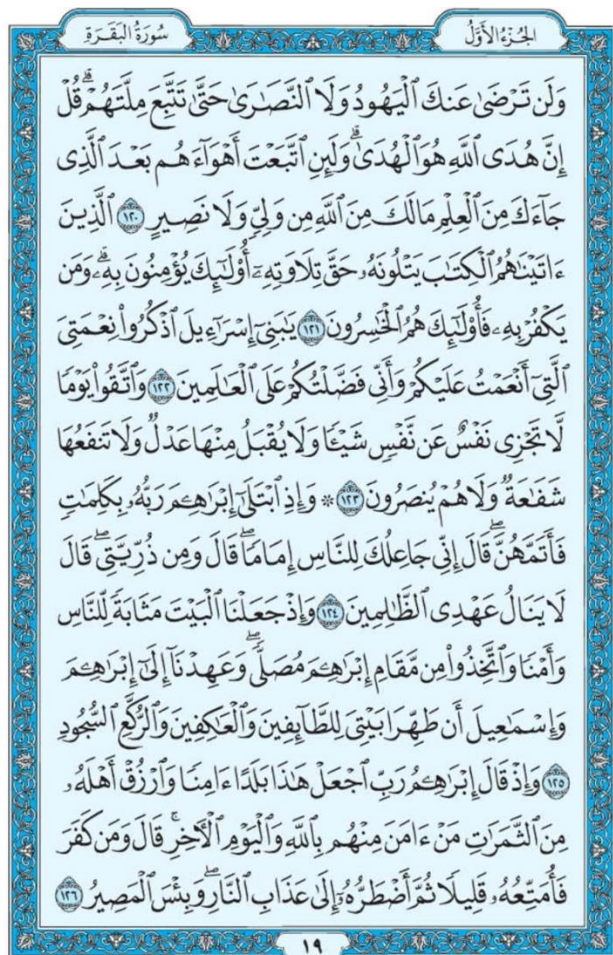 الجُزْءُ الأَوَّلُ
سُورَةُ البَقَرَةِ
وَلَن تَرْضَىٰ عَنكَ ٱلْيَهُودُ وَلَا ٱلنَّصَٰرَىٰ حَتَّىٰ تَتَّبِعَ مِلَّتَهُمْۗ قُلْ
إِنَّ هُدَى ٱللَّهِ هُوَ ٱلْهُدَىٰۗ وَلَئِنِ ٱتَّبَعْتَ أَهْوَآءَهُم بَعْدَ ٱلَّذِى
جَآءَكَ مِنَ ٱلْعِلْمِ مَا لَكَ مِنَ ٱللَّهِ مِن وَلِىٍّ وَلَا نَصِيرٍ ١٢٠ ٱلَّذِينَ
ءَاتَيْنَٰهُمُ ٱلْكِتَٰبَ يَتْلُونَهُۥ حَقَّ تِلَاوَتِهِۦٓ أُو۟لَٰٓئِكَ يُؤْمِنُونَ بِهِۦۗ وَمَن
يَكْفُرْ بِهِۦ فَأُو۟لَٰٓئِكَ هُمُ ٱلْخَٰسِرُونَ ١٢١ يَٰبَنِىٓ إِسْرَٰٓءِيلَ ٱذْكُرُوا۟ نِعْمَتِىَ
ٱلَّتِىٓ أَنْعَمْتُ عَلَيْكُمْ وَأَنِّى فَضَّلْتُكُمْ عَلَى ٱلْعَٰلَمِينَ ١٢٢ وَٱتَّقُوا۟ يَوْمًا
لَّا تَجْزِى نَفْسٌ عَن نَّفْسٍ شَيْـًٔا وَلَا يُقْبَلُ مِنْهَا عَدْلٌ وَلَا تَنفَعُهَا
شَفَٰعَةٌ وَلَا هُمْ يُنصَرُونَ ١٢٣ ۞ وَإِذِ ٱبْتَلَىٰٓ إِبْرَٰهِـۧمَ رَبُّهُۥ بِكَلِمَٰتٍ
فَأَتَمَّهُنَّۖ قَالَ إِنِّى جَاعِلُكَ لِلنَّاسِ إِمَامًاۖ قَالَ وَمِن ذُرِّيَّتِىۖ قَالَ
لَا يَنَالُ عَهْدِى ٱلظَّٰلِمِينَ ١٢٤ وَإِذْ جَعَلْنَا ٱلْبَيْتَ مَثَابَةً لِّلنَّاسِ
وَأَمْنًا وَٱتَّخِذُوا۟ مِن مَّقَامِ إِبْرَٰهِـۧمَ مُصَلًّىۖ وَعَهِدْنَآ إِلَىٰٓ إِبْرَٰهِـۧمَ
وَإِسْمَٰعِيلَ أَن طَهِّرَا بَيْتِىَ لِلطَّآئِفِينَ وَٱلْعَٰكِفِينَ وَٱلرُّكَّعِ ٱلسُّجُودِ
١٢٥ وَإِذْ قَالَ إِبْرَٰهِـۧمُ رَبِّ ٱجْعَلْ هَٰذَا بَلَدًا ءَامِنًا وَٱرْزُقْ أَهْلَهُۥ
مِنَ ٱلثَّمَرَٰتِ مَنْ ءَامَنَ مِنْهُم بِٱللَّهِ وَٱلْيَوْمِ ٱلْءَاخِرِۚ قَالَ وَمَن كَفَرَ
فَأُمَتِّعُهُۥ قَلِيلًا ثُمَّ أَضْطَرُّهُۥٓ إِلَىٰ عَذَابِ ٱلنَّارِۖ وَبِئْسَ ٱلْمَصِيرُ ١٢٦
١٩